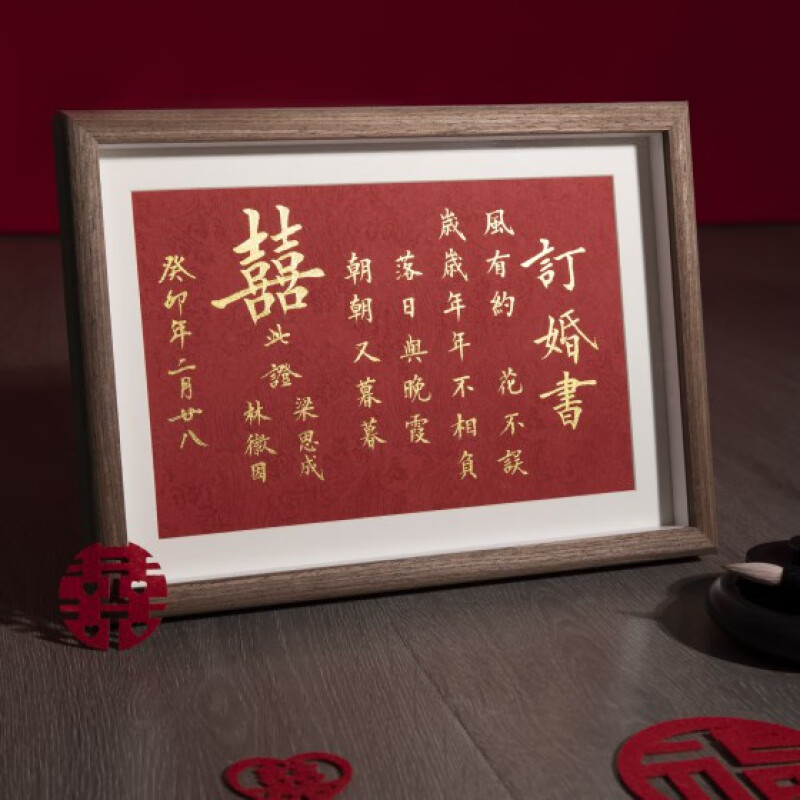 訂婚書
風有約 花不誤
歲歲年年不相負
落日與晚霞
朝朝又暮暮
囍
此證
梁思成
林徽因
癸卯年二月廿八
囍
囍
福